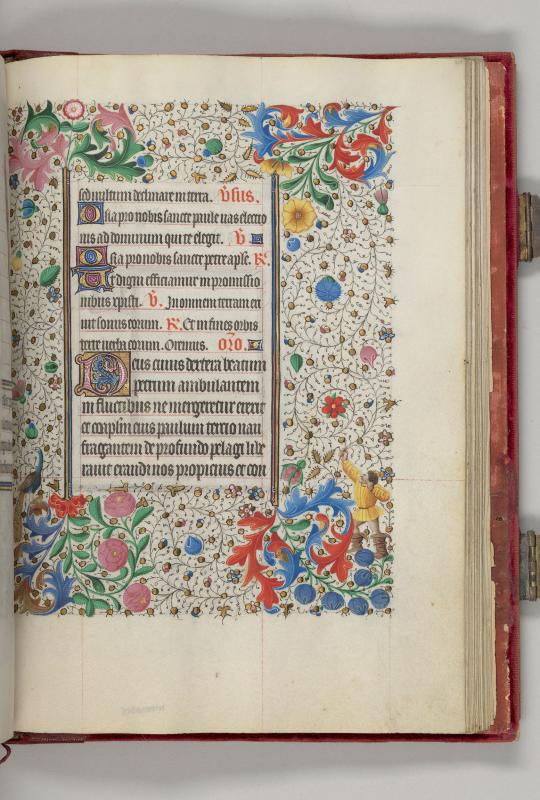 sed multum declinare in terra. v̄sus.
Ora pro nobis sancte paule uas electio
nis ad dominum qui te elegit. v̄
Ora pro nobis sancte petre aplē. R̄.
Ut digni efficiamur in promissio
nibus cristi. v̄. In omnem terram ex
iuit sonus eorum. R̄. Et in fines orbis
terre uerba eorum. Oremus. orō.
Deus cuius dextera beatum
petrum ambulantem
in fluctibus ne mergeretur erexit
et coapłm eius paulum tercio nau
fragantem de profundo pelagi libe
rauit exaudi nos propicius et con